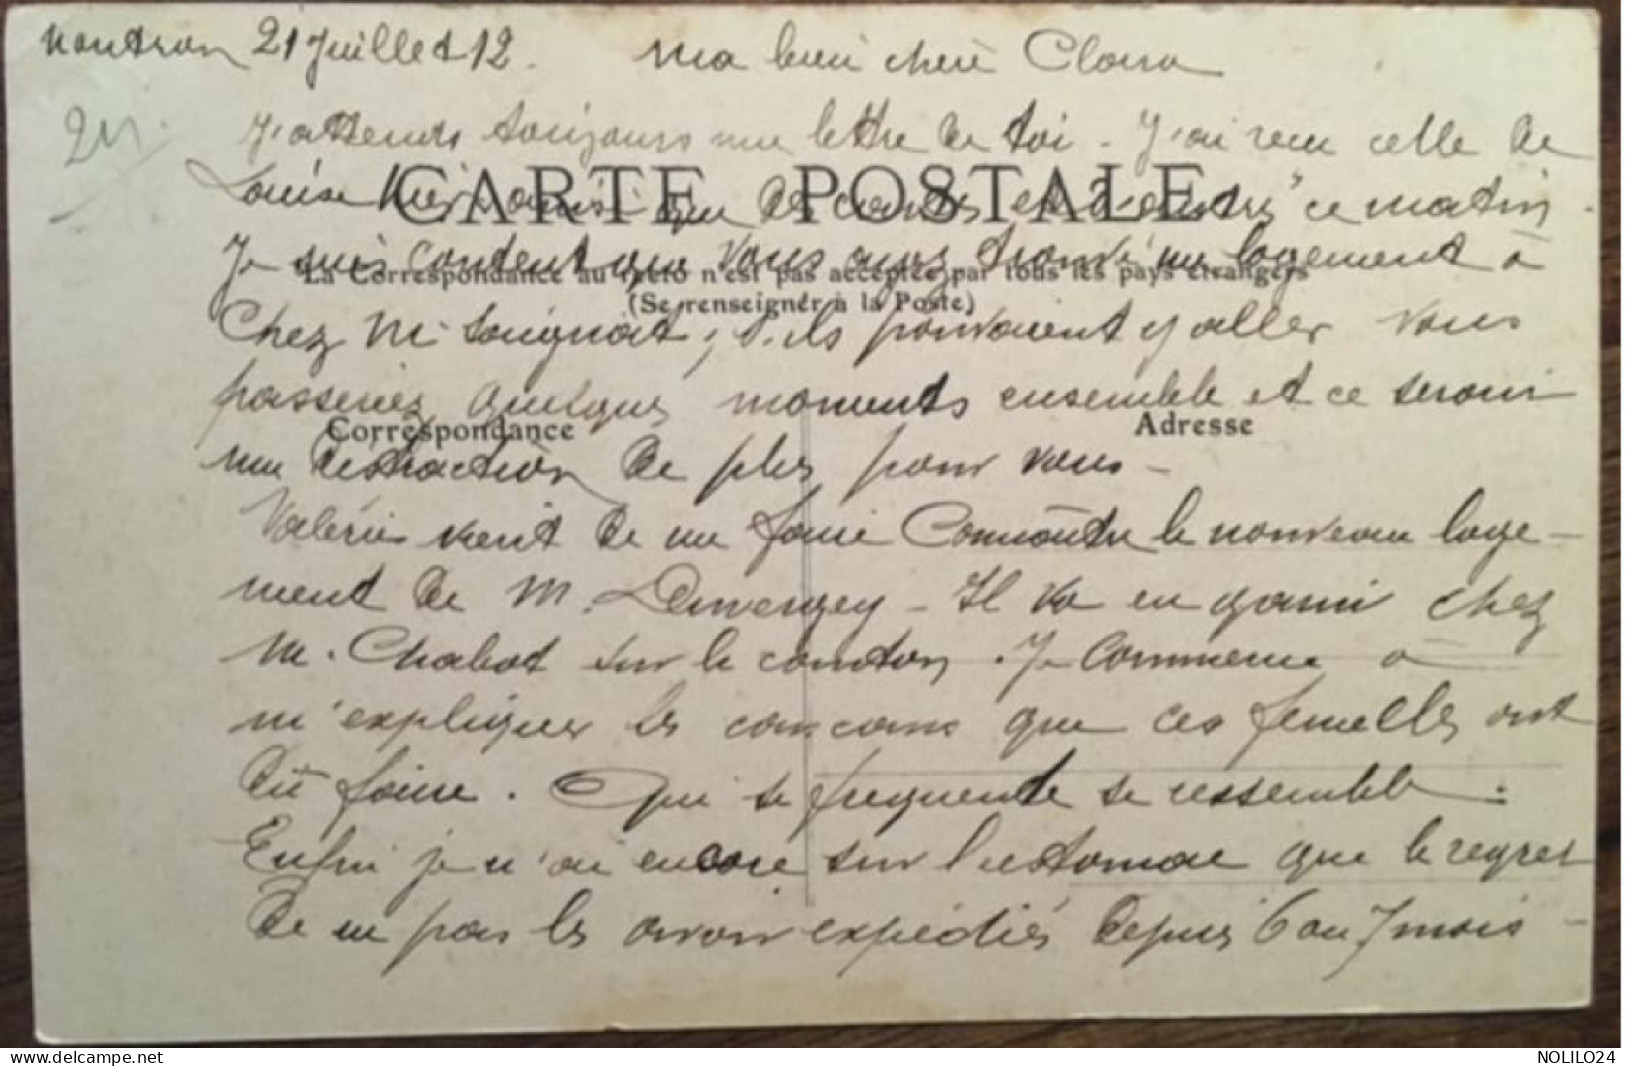 Nontron 21 Juillet 12. Ma bien chère Clara
J'attends toujours une lettre de toi. J'ai reçu celle de
Louise hier ainsi que de et ce matin.
CARTE POSTALE
Je suis content que vous ayez trouvé un logement à
La Correspondance au recto n'est pas acceptée par tous les pays étrangers
(Se renseigner à la Poste)
Chez M. Souignat, s'ils pouvaient y aller vous
passeriez quelques moments ensemble et ce serait
Correspondance
Adresse
une distraction de plus pour vous -
Valérie vient de me faire connaître le nouveau loge-
ment de M. - Il va en garni chez
M. Chabot sur le . Je commence à
m'expliquer les cancans que ces femelles ont
dû faire. Qui se fréquente se ressemble.
Enfin je n'ai encore sur l'estomac que le regret
de ne pas les avoir expédiés depuis 6 ou 7 mois -
delcampe.net
NOLILO24